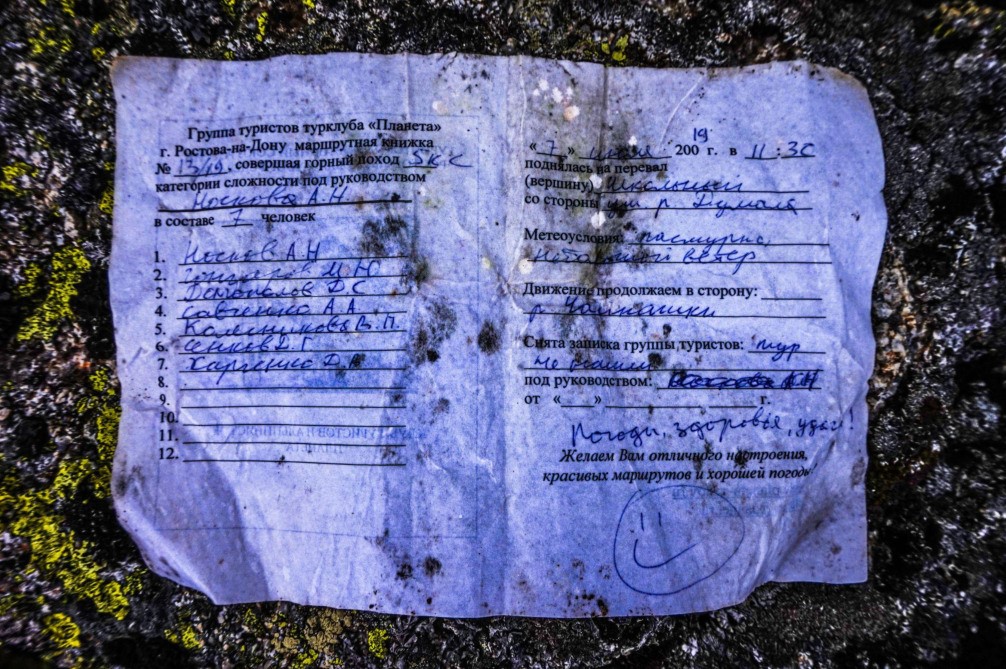 Группа туристов турклуба «Планета»
г. Ростова-на-Дону маршрутная книжка
№ 13/19, совершая горный поход 5 к.с
категории сложности под руководством
Носкова А.Н
в составе 7 человек
1. Носков А.Н
2. М Ю
3. Д С
4. Савченко А.А.
5. Колесникова В.П.
6. Сенков Г
7. Харченко Д
8.
9.
10.
11.
12.
19
« 7 » июля 200 г. в 11:30
поднялась на перевал
(вершину) Школьный
со стороны ущ. р
Метеоусловия: пасмурно,
небольшой ветер
Движение продолжаем в сторону:
р.
Снята записка группы туристов: тур
не нашли
под руководством:
от « » г.
Погоды, здоровья, удачи!
Желаем Вам отличного настроения,
красивых маршрутов и хорошей погоды